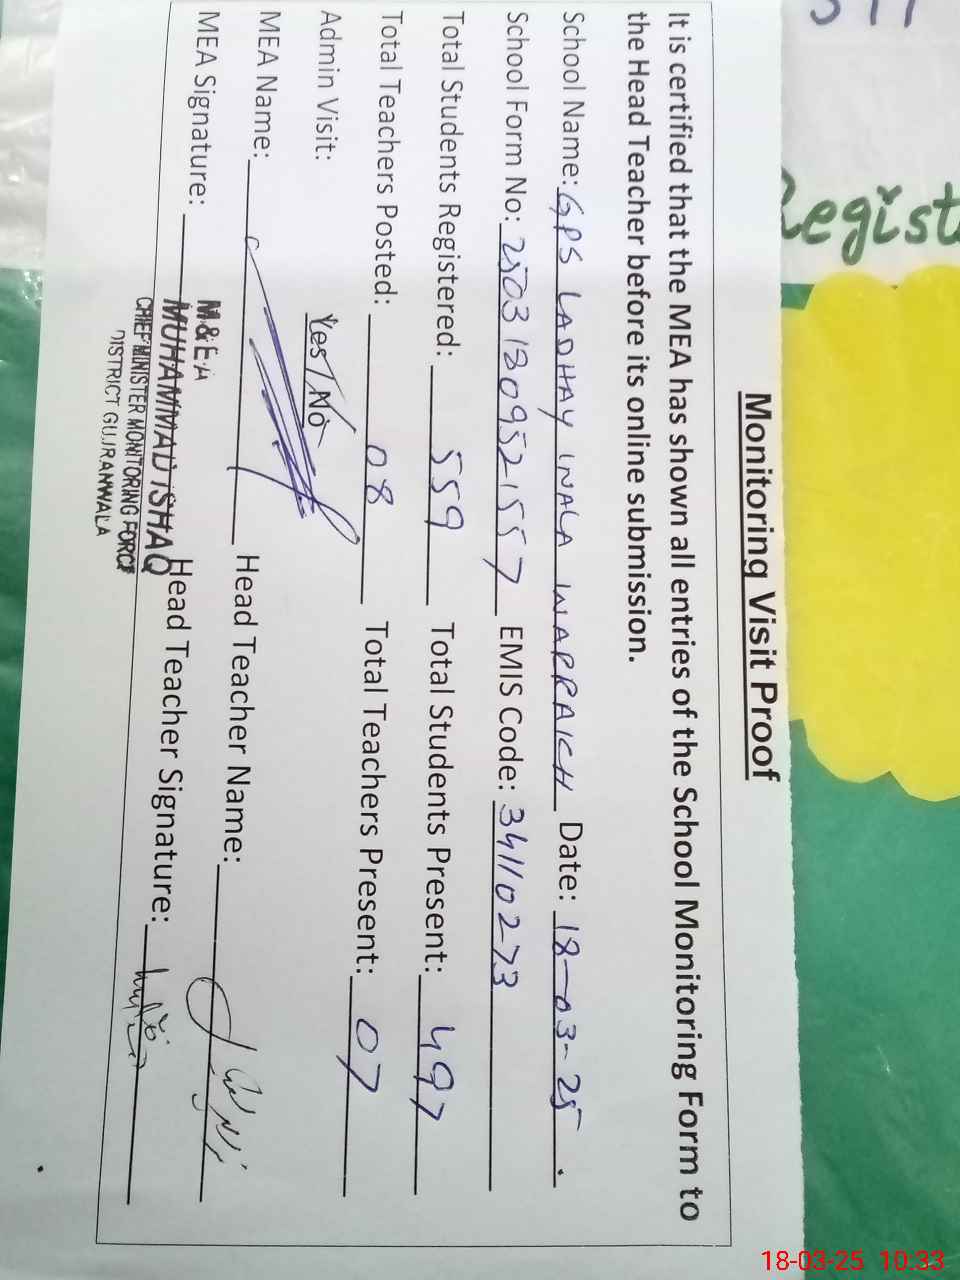 Regist
Monitoring Visit Proof
It is certified that the MEA has shown all entries of the School Monitoring Form to
the Head Teacher before its online submission.
School Name: GPS LADHAY WALA WARRAICH Date: 18-03-25
School Form No: 2503180952157 EMIS Code: 34110273
Total Students Registered: 559 Total Students Present: 497
Total Teachers Posted: 08 Total Teachers Present: 07
Admin Visit: Yes / No
MEA Name: Head Teacher Name:
MEA Signature: Head Teacher Signature:
M & E A
MUHAMMAD ISHAQ
CHIEF MINISTER MONITORING FORCE
DISTRICT GUJRANWALA
18-03-25 10.33